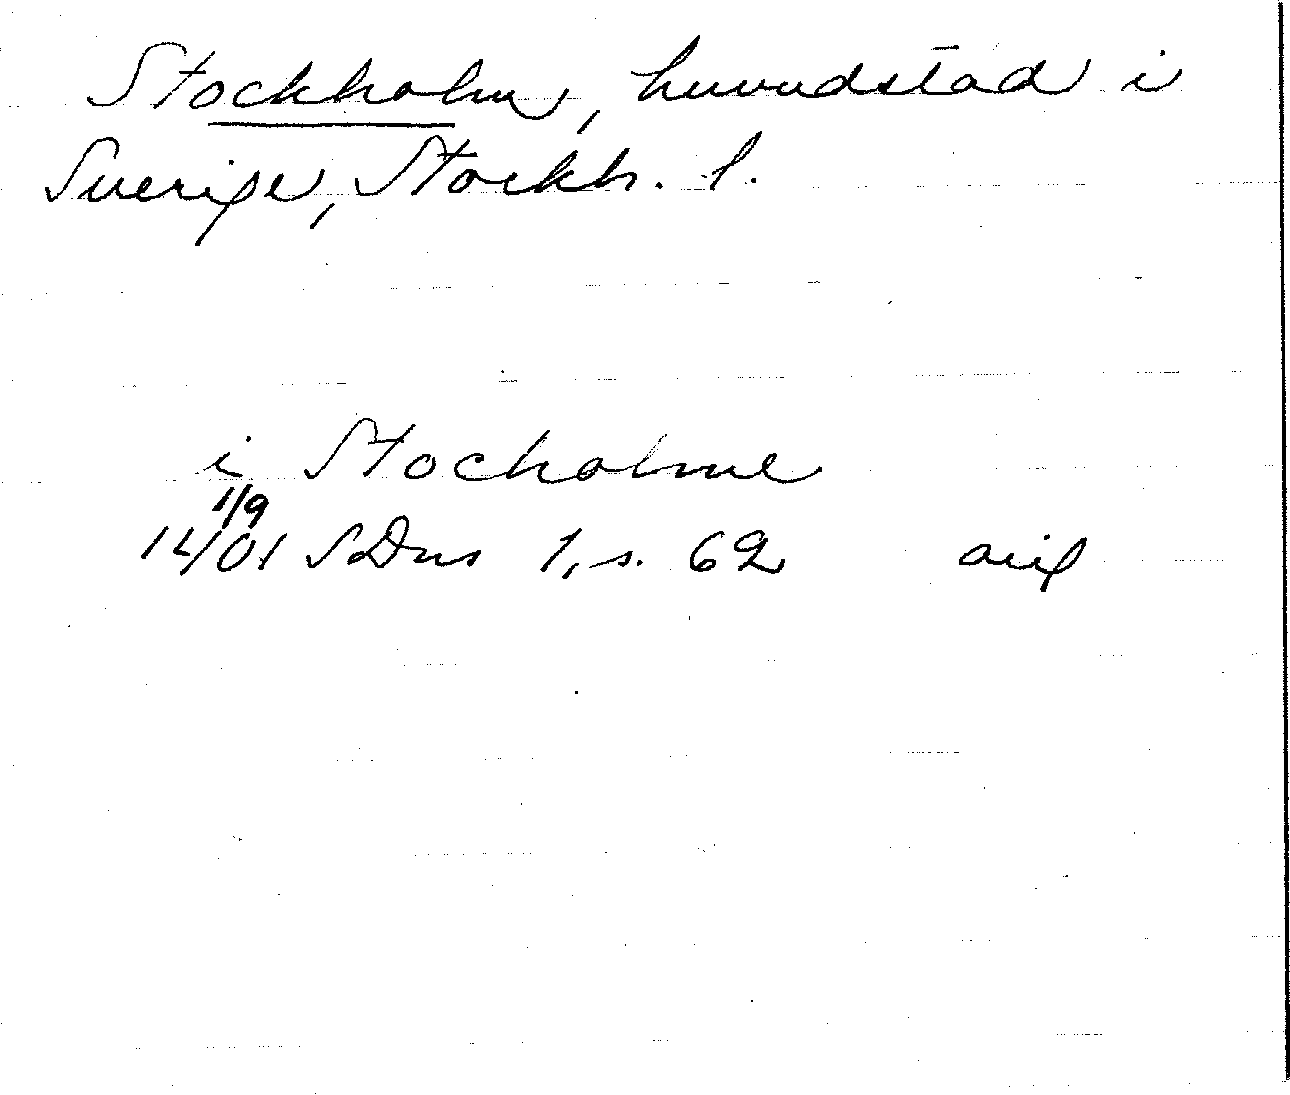 Stockholm, huvudstad i
Sverige, Stockh. l.
i Stocholme
1/9
14/01 SDns 1, s. 62 avg